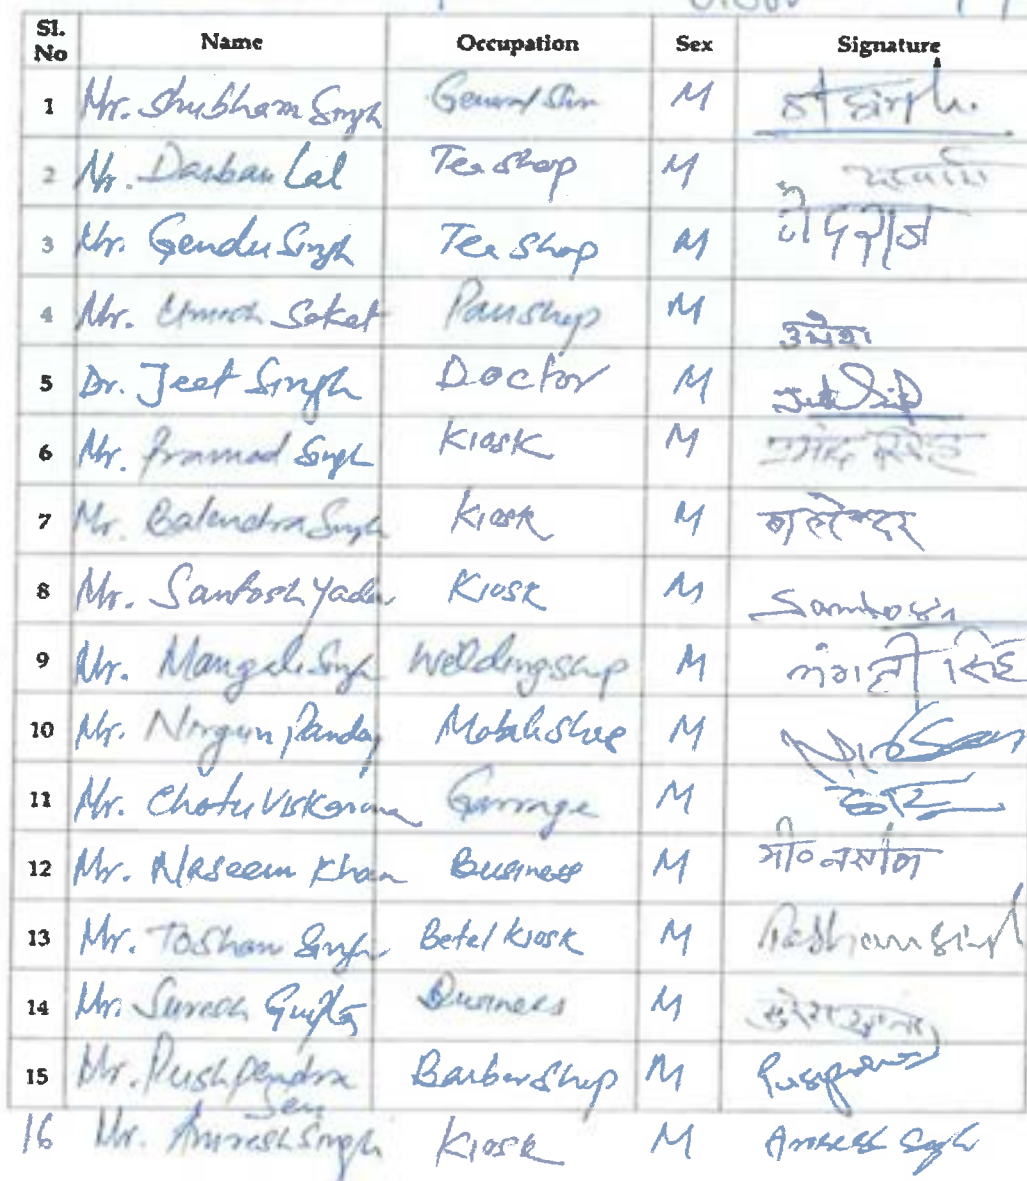 Sl. No Name Occupation Sex Signature
1 Mr. Shubham Singh General M
2 Mr. Darban Lal Tea shop M
3 Mr. Gendu Singh Tea shop M
4 Mr. Umesh Saket Panshop M उमेश
5 Dr. Jeet Singh Doctor M
6 Mr. Pramod Singh Kiosk M
7 Mr. Balendra Singh Kiosk M बालेन्दर
8 Mr. Santosh Yadav Kiosk M Santosh
9 Mr. Mangali Singh Welding shop M मंगली सिंह
10 Mr. Nirgun Panday Mobile shop M
11 Mr. Chotu Viskarma Garrage M
12 Mr. Naseem Khan Business M मो० नसीम
13 Mr. Toshan Singh Betel Kiosk M
14 Mr. Suresh Gupta Business M
15 Mr. Pushpendra Sen Barber Shop M
16 Mr. Amresh Singh Kiosk M Amresh Singh